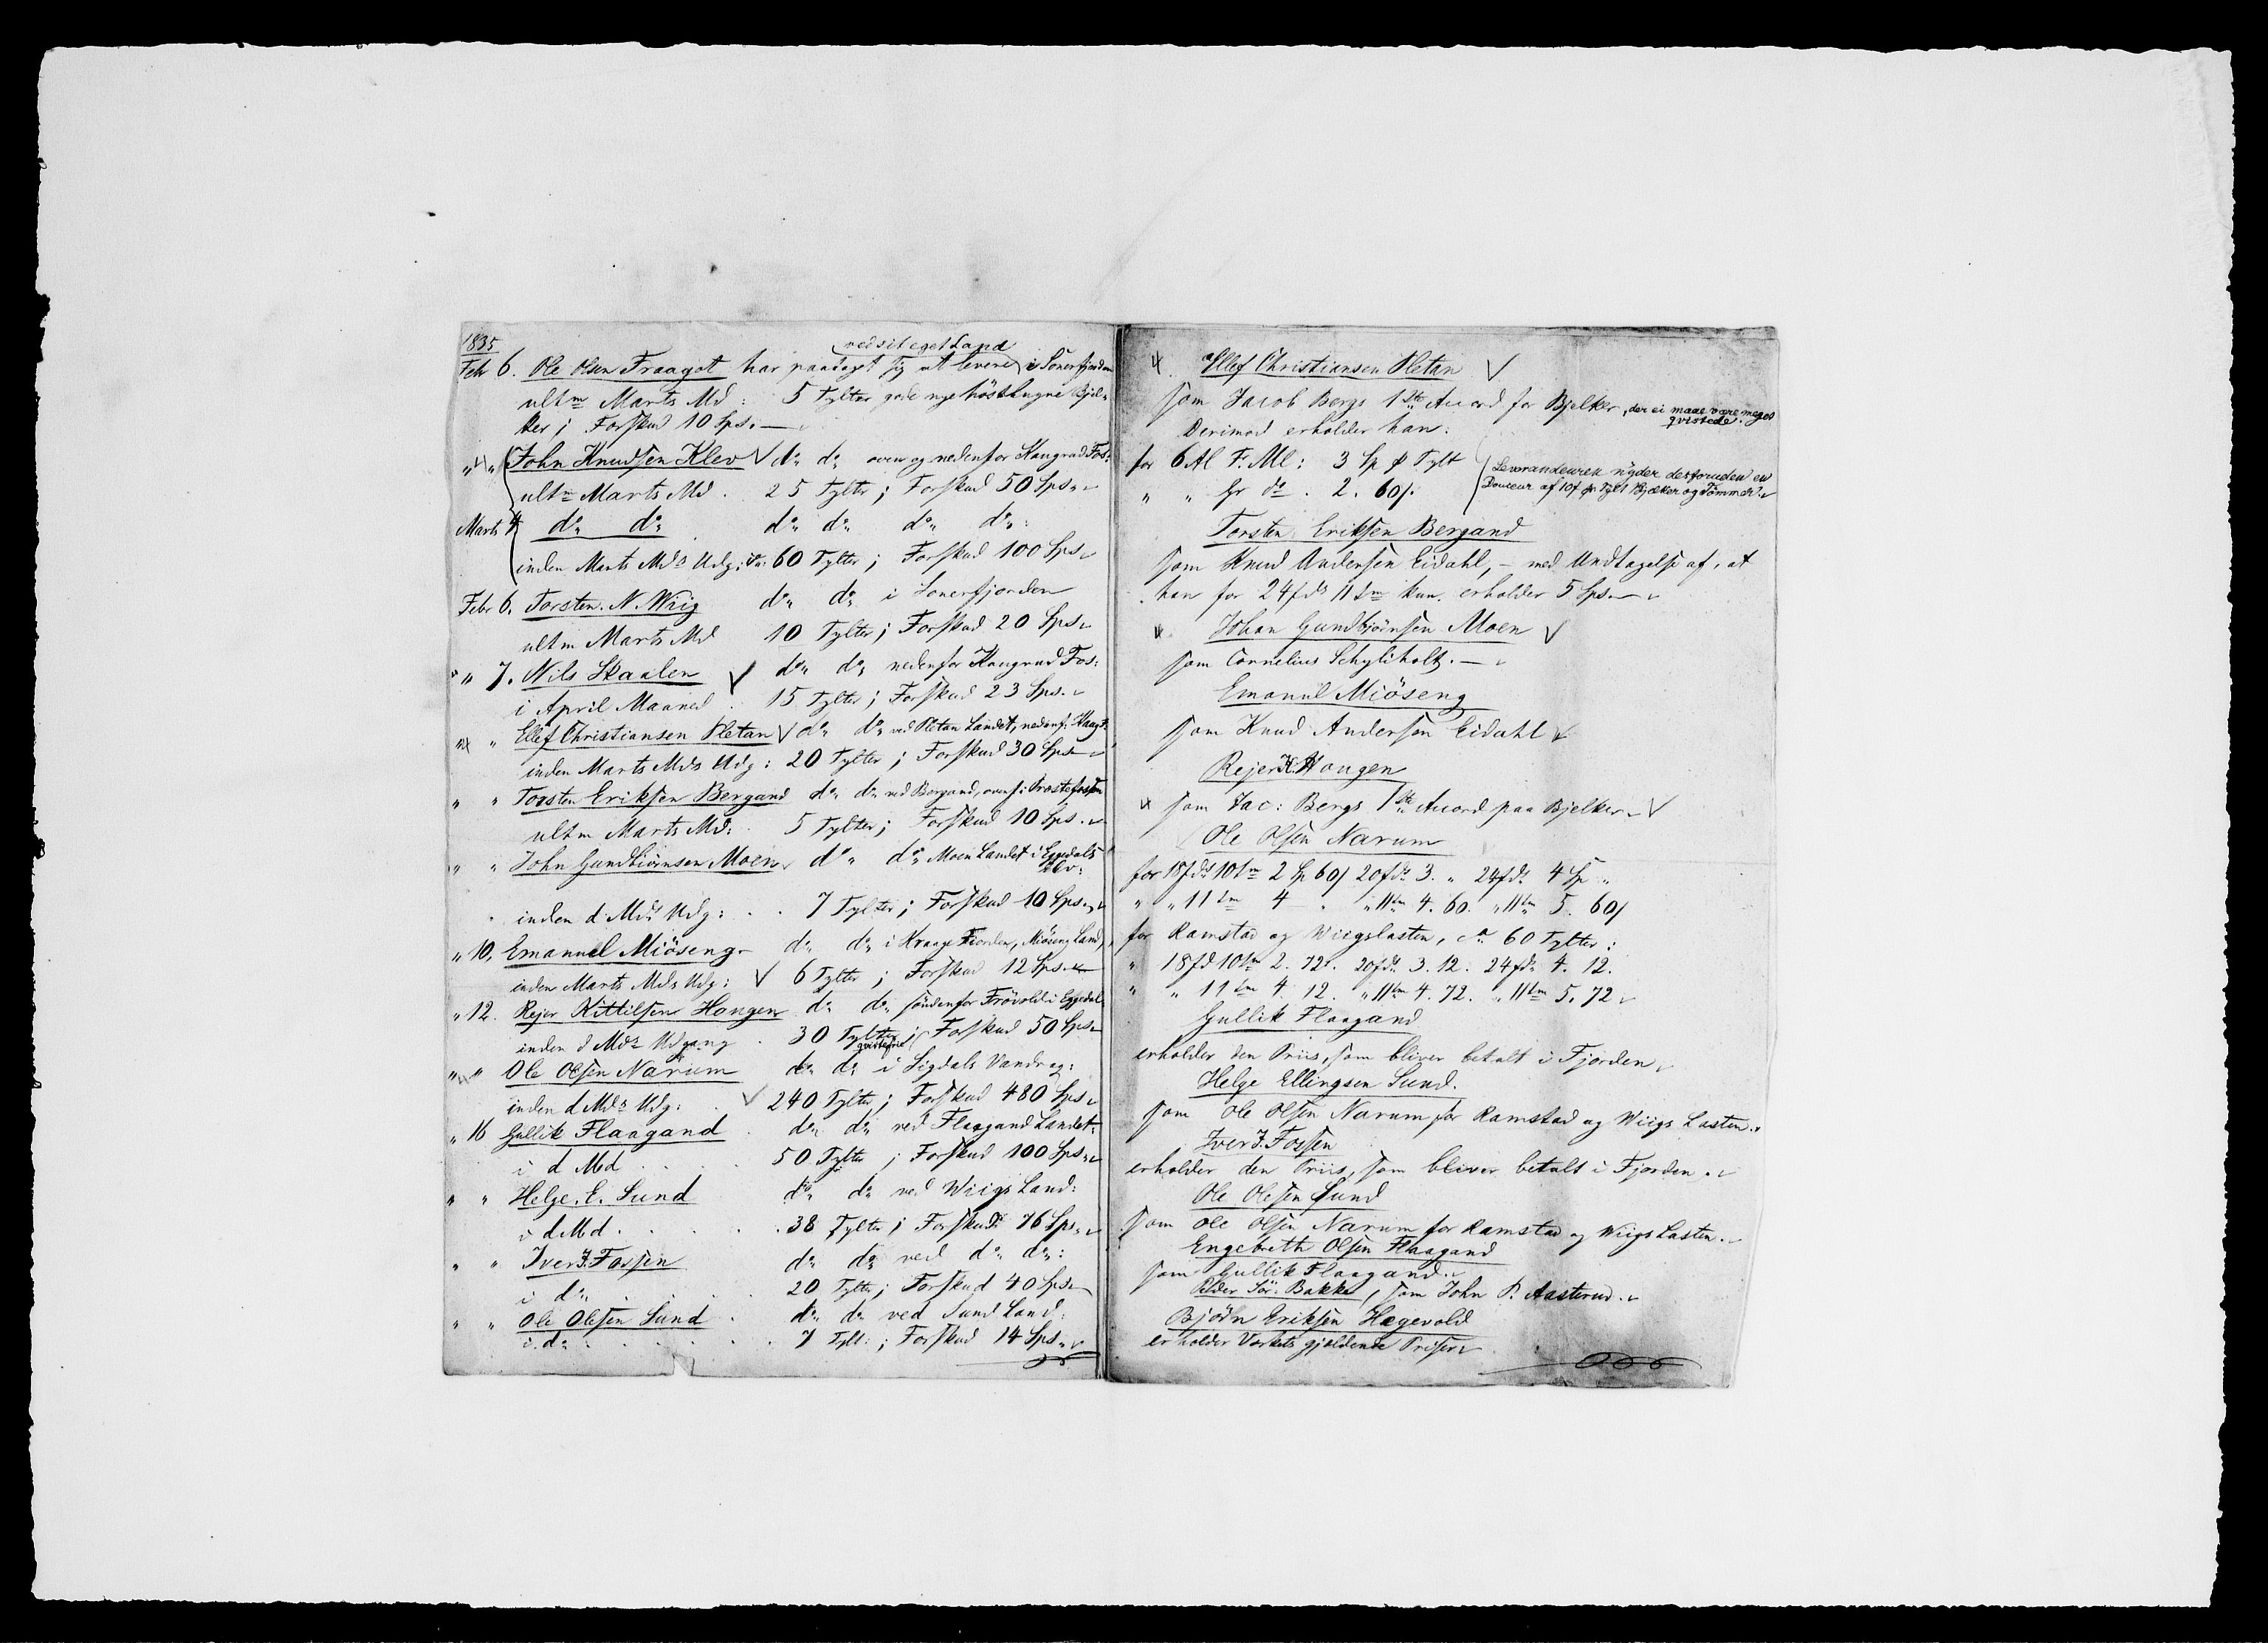 1835
ved sit eget Land
Febr 6. Ole Olsen Fraaget har paataget sig at levere i Sonerfjorden
ultm Marts Md: 5 Tylter gode nye hösthugne Bjel-
ker; Forskud 10 Sps.
" " John Knudsen Klev do do oven og nedenfor Kaugrud Fos:
ultm Marts Md. 25 Tylter; Forskud 50 Sps.
Marts 4 do do do do do do:
inden Marts Mds Udg: 60 Tylter; Forskud 100 Sps
Febr 6. Torsten N. Wiig do do i Sonerfjorden
ultm Marts Md 10 Tylter; Forskud 20 Sps
" 7. Nils Skaalen do do nedenfor Kaugrud Fos:
i April Maaned. 15 Tylter; Forskud 23 Sps.
" Ellef Christiansen Pletan do do ved Pletan Landet, nedenf:
inden Marts Mds Udg: 20 Tylter; Forskud 30 Sps
" " Torsten Eriksen Bergand do do ved Bergand, ovenf: Prostefossen
ultm Marts Md: 5 Tylter; Forskud 10 Sps.
" " John Gundbiörnsen Moen do do Moen Landet i Eggedals
Elv:
inden d Mds Udg: . . 7 Tylter; Forskud 10 Sps.
" 10. Emanuel Miöseng do do i Fiorden, Miöseng Land,
inden Marts Mds Udg: 6 Tylter; Forskud 12 Sps.
" 12. Rejer Kittilsen Hongen do do söndenfor Frövold i Eggedal
inden d Mds Udgang . 30 Tylter; Forskud 50 Sps
qvistefrie
" " Ole Olsen Narum do do i Sigdals Vandrag:
inden d Mds Udg: 240 Tylter; Forskud 480 Sps
" 16 Gullik Flaagand . do do ved Flaagand Landet:
i d Md . . . . 50 Tylter; Forskud 100 Sps
" " Helge E. Sund do do ved Wiigs Land:
i d Md . . . . 38 Tylter; Forskud 76 Sps
" " Iver I. Fossen do do ved do do:
i do . . . . 20 Tylter; Forskud 40 Sps
" " Ole Olesen Sund . do do ved Sund Land:
i do . . . . . 7 Tylt: ; Forskud 14 Sps.
Ellef Christiansen Pletan
som Jacob Bergs 1ste Accord for Bjelker, der ei maae være meget
qvistede.
Derimod erholder han:
for 6 Al F. Ml: 3 Sp pr Tylt
Leverandeuren nyder desforuden en
" " Gr do . 2. 60/.
Douceur af 10/ pr Tylt Bjelker og Tömmer.
Torsten Eriksen Bergand
som Knud Andersen Eidahl, - med Undtagelse af, at
han for 24fds 11 tm kun erholder 5 Sps.
Johan Gundbjörnsen Moen
som Cornelius
Emanuel Miöseng
som Knud Andersen Eidahl
Rejer K. Hongen
som Jac: Bergs 1ste Accord paa Bjelker.
Ole Olsen Narum
for 18fds 10tm 2 Sp 60/ 20fds 3. " 24fds 4 Sp "
" " 11 tm 4 . " 11tm 4. 60. " 11tm 5. 60/
for Ramstad og Wiigslasten, ca 60 Tylter:
" 18fd 10tm 2. 72. 20fds 3. 12. 24fds 4. 12.
" " 11 tm 4. 12. " 11tm 4. 72. " 11tm 5. 72
Gullik Flaagand
erholder den Priis, som bliver betalt i Fjorden
Helge Ellingsen Sund.
som Ole Olsen Narum for Ramstad og Wiigs Lasten.
Iver I. Fossen
erholder den Priis, som bliver betalt i Fjorden.
Ole Olesen Sund
som Ole Olsen Narum for Ramstad og Wiigs Lasten.
Engebreth Olsen Flaagand
som Gullik Flaagand.
Peder Sör: Bakke, som John P. Aasterud.
Björn Eriksen Hægevold
erholder Værkets gjældende Priser